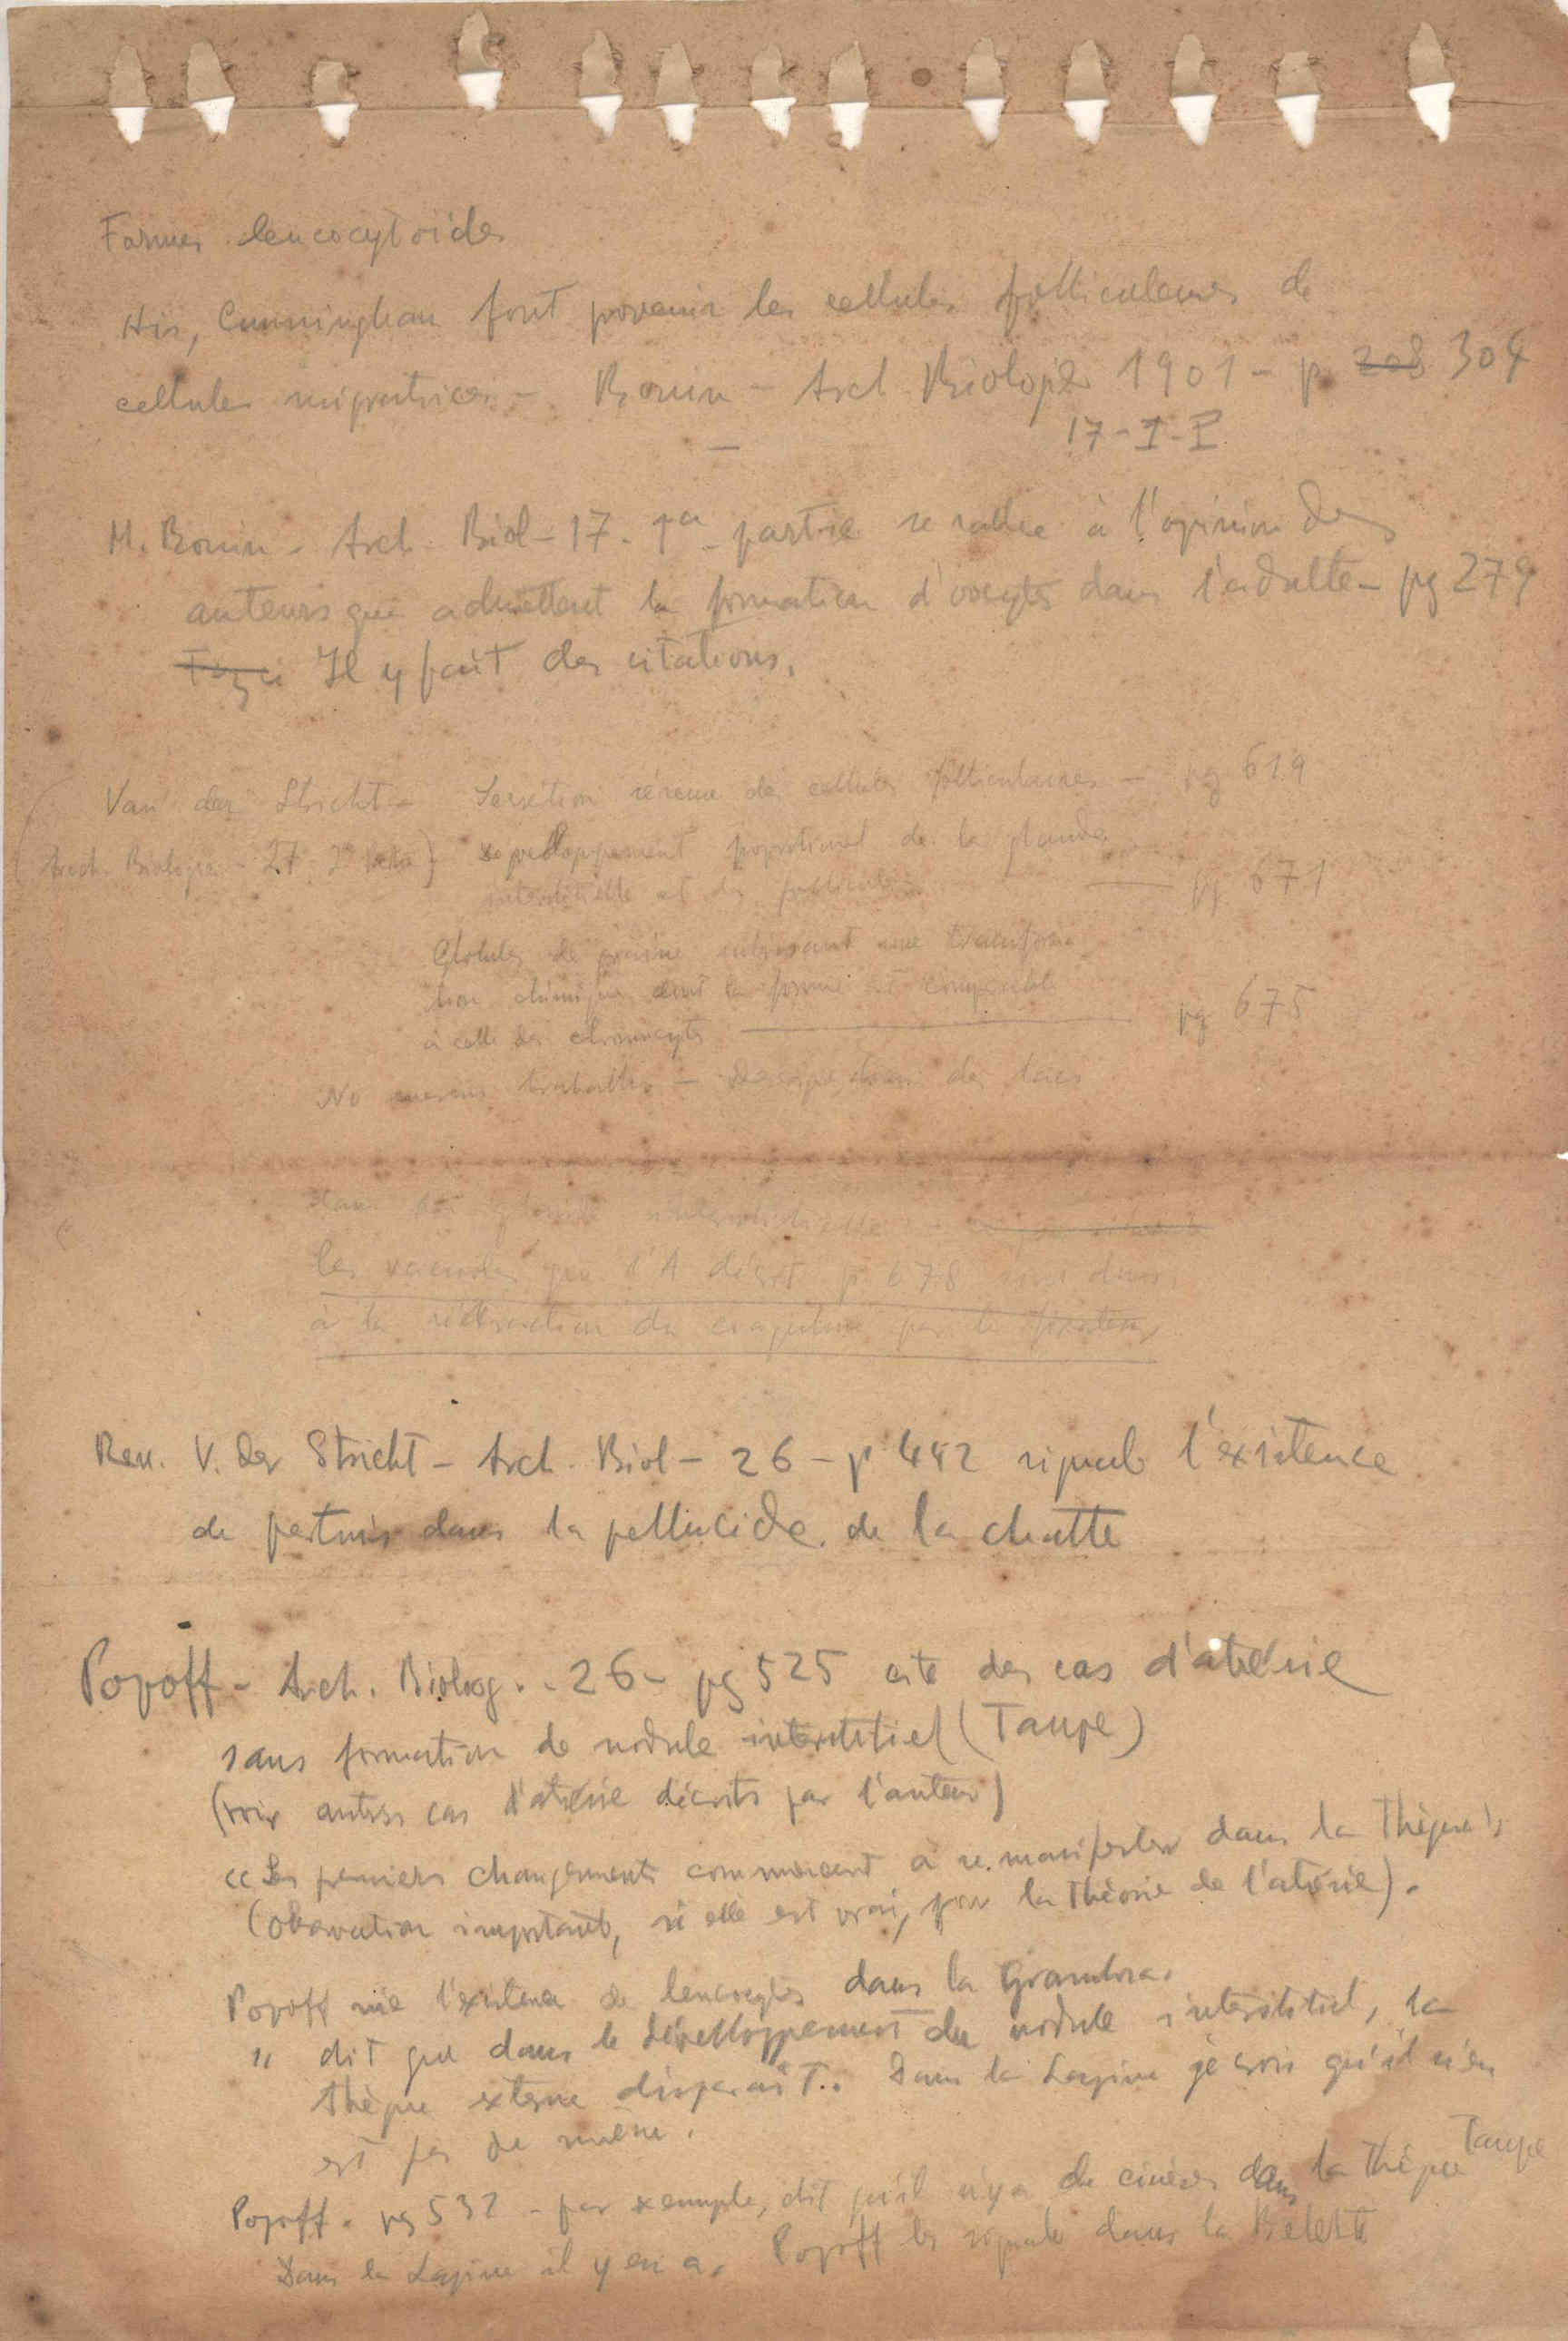 Formes leucocytoides
His, Cunningham font provenir les cellules folliculaires de
cellules migratrices - Bouin - Arch Biologie 1901 - p 208 304
17 - I - P
M. Bouin - Arch. Biol - 17 - 1a partie se rallie à l'opinion des
auteurs que admettent la formation d'oocytes dans l'adulte - pg 279
Il y fait des citations.
Van der Stricht - Secretion séreuse des cellules folliculaires - pg 619
Arch. Biologie - 27 developpement de la glande
interstitielle et des follicules pg 671
Globules de graisse subissant une transforma
tion chimique dont la forme est comparable
à celle des pg 675
No -
dans la glande interstitielle
les vacuoles que l'A décrit p 678 sont dues
à la rétraction du par le
Ren. V. der Stricht - Arch. Biol - 26 - p 442 signale l'existence
de pertuis dans la pellucide de la chatte
Popoff - Arch. Biolog. - 26 - pg 525 cite des cas d'atrésie
sans formation de nodule interstitiel (Taupe)
(voir autres cas d'atrésie décrits par l'auteur)
« Les premiers changements commencent à se manifester dans la Thèque is
(Observation importante, si elle est vrai, pour la théorie de l'atrésie).
Popoff nie l'existence de leucocytes dans la Granulosa.
" dit que dans le développement du nodule interstitiel, la
thèque externe disparaiT.. Dans la Lapine je crois qu'il n'en
est pas de même.
Popoff. pg 532 - par exemple, dit qu'il n'y a de cinèses dans la thèque Taupe
Dans la Lapine il y en a. Popoff les signale dans la Belette